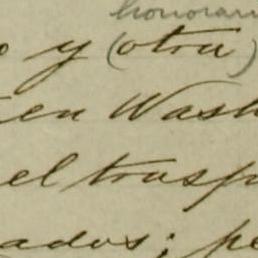 honorari
o y (otra)
en Wash
el trasp
ados; pe